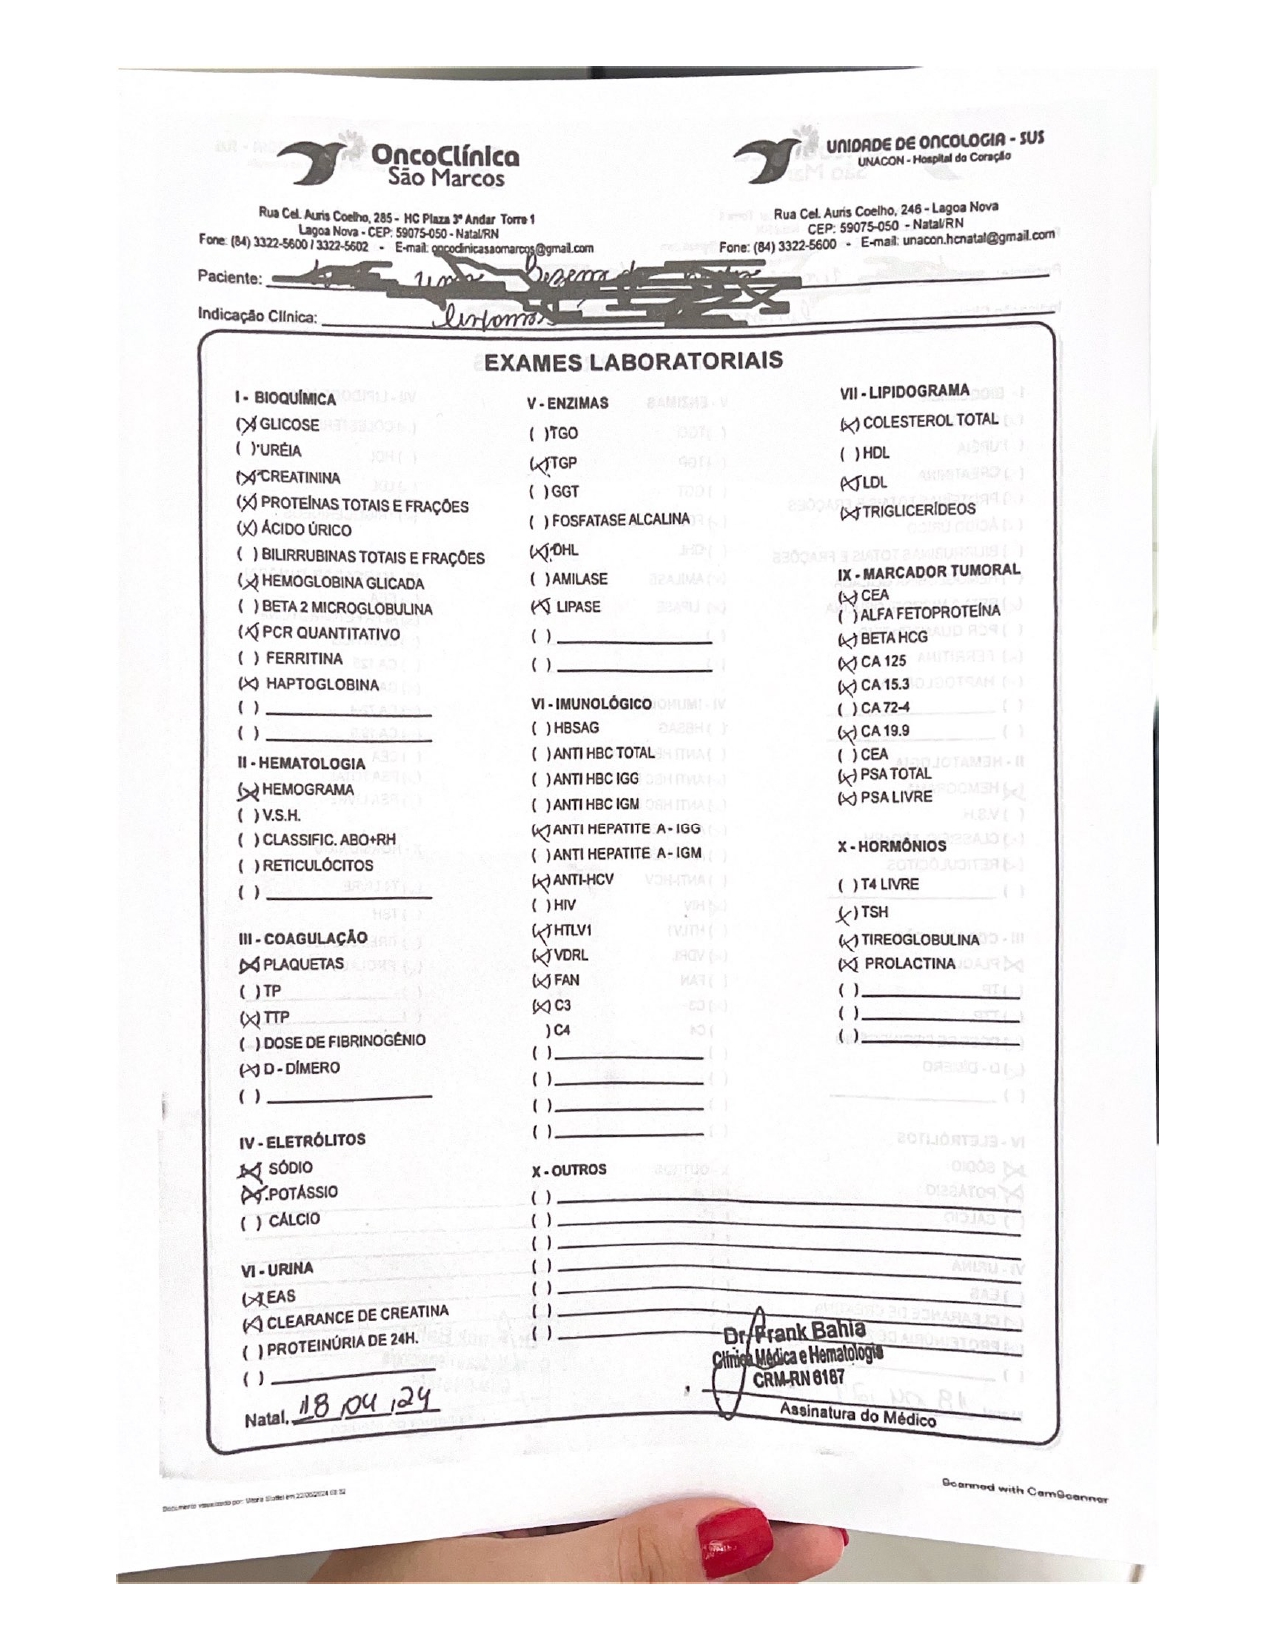 OncoClínica
São Marcos
Rua Cel. Auris Coelho, 285 - HC Plaza 3º Andar Torre 1
Lagoa Nova - CEP: 59075-050 - Natal/RN
Fone: (84) 3322-5600 / 3322-5602 - E-mail: oncoclinicasaomarcos@gmail.com
UNIDADE DE ONCOLOGIA - SUS
UNACON - Hospital do Coração
Rua Cel. Auris Coelho, 246 - Lagoa Nova
CEP: 59075-050 - Natal/RN
Fone: (84) 3322-5600 - E-mail: unacon.hcnatal@gmail.com
Paciente:
Indicação Clínica:
EXAMES LABORATORIAIS
I - BIOQUÍMICA
(X) GLICOSE
( ) URÉIA
(X) CREATININA
(X) PROTEÍNAS TOTAIS E FRAÇÕES
(X) ÁCIDO ÚRICO
( ) BILIRRUBINAS TOTAIS E FRAÇÕES
(X) HEMOGLOBINA GLICADA
( ) BETA 2 MICROGLOBULINA
(X) PCR QUANTITATIVO
( ) FERRITINA
(X) HAPTOGLOBINA
( )
( )
II - HEMATOLOGIA
(X) HEMOGRAMA
( ) V.S.H.
( ) CLASSIFIC. ABO+RH
( ) RETICULÓCITOS
( )
III - COAGULAÇÃO
(X) PLAQUETAS
( ) TP
(X) TTP
( ) DOSE DE FIBRINOGÊNIO
(X) D - DÍMERO
( )
IV - ELETRÓLITOS
(X) SÓDIO
(X) POTÁSSIO
( ) CÁLCIO
VI - URINA
(X) EAS
(X) CLEARANCE DE CREATINA
( ) PROTEINÚRIA DE 24H.
( )
Natal, 18 04 24
V - ENZIMAS
( ) TGO
(X) TGP
( ) GGT
( ) FOSFATASE ALCALINA
(X) DHL
( ) AMILASE
(X) LIPASE
( )
( )
VI - IMUNOLÓGICO
( ) HBSAG
( ) ANTI HBC TOTAL
( ) ANTI HBC IGG
( ) ANTI HBC IGM
(X) ANTI HEPATITE A - IGG
( ) ANTI HEPATITE A - IGM
(X) ANTI-HCV
( ) HIV
(X) HTLV1
(X) VDRL
(X) FAN
(X) C3
) C4
( )
( )
( )
( )
X - OUTROS
( )
( )
( )
( )
( )
( )
VII - LIPIDOGRAMA
(X) COLESTEROL TOTAL
( ) HDL
(X) LDL
(X) TRIGLICERÍDEOS
IX - MARCADOR TUMORAL
(X) CEA
( ) ALFA FETOPROTEÍNA
(X) BETA HCG
(X) CA 125
(X) CA 15.3
( ) CA 72-4
(X) CA 19.9
( ) CEA
(X) PSA TOTAL
(X) PSA LIVRE
X - HORMÔNIOS
( ) T4 LIVRE
(X) TSH
(X) TIREOGLOBULINA
(X) PROLACTINA
( )
( )
( )
Dr. Frank Bahia
Clínica Médica e Hematologia
CRM-RN 6187
Assinatura do Médico
Scanned with CamScanner